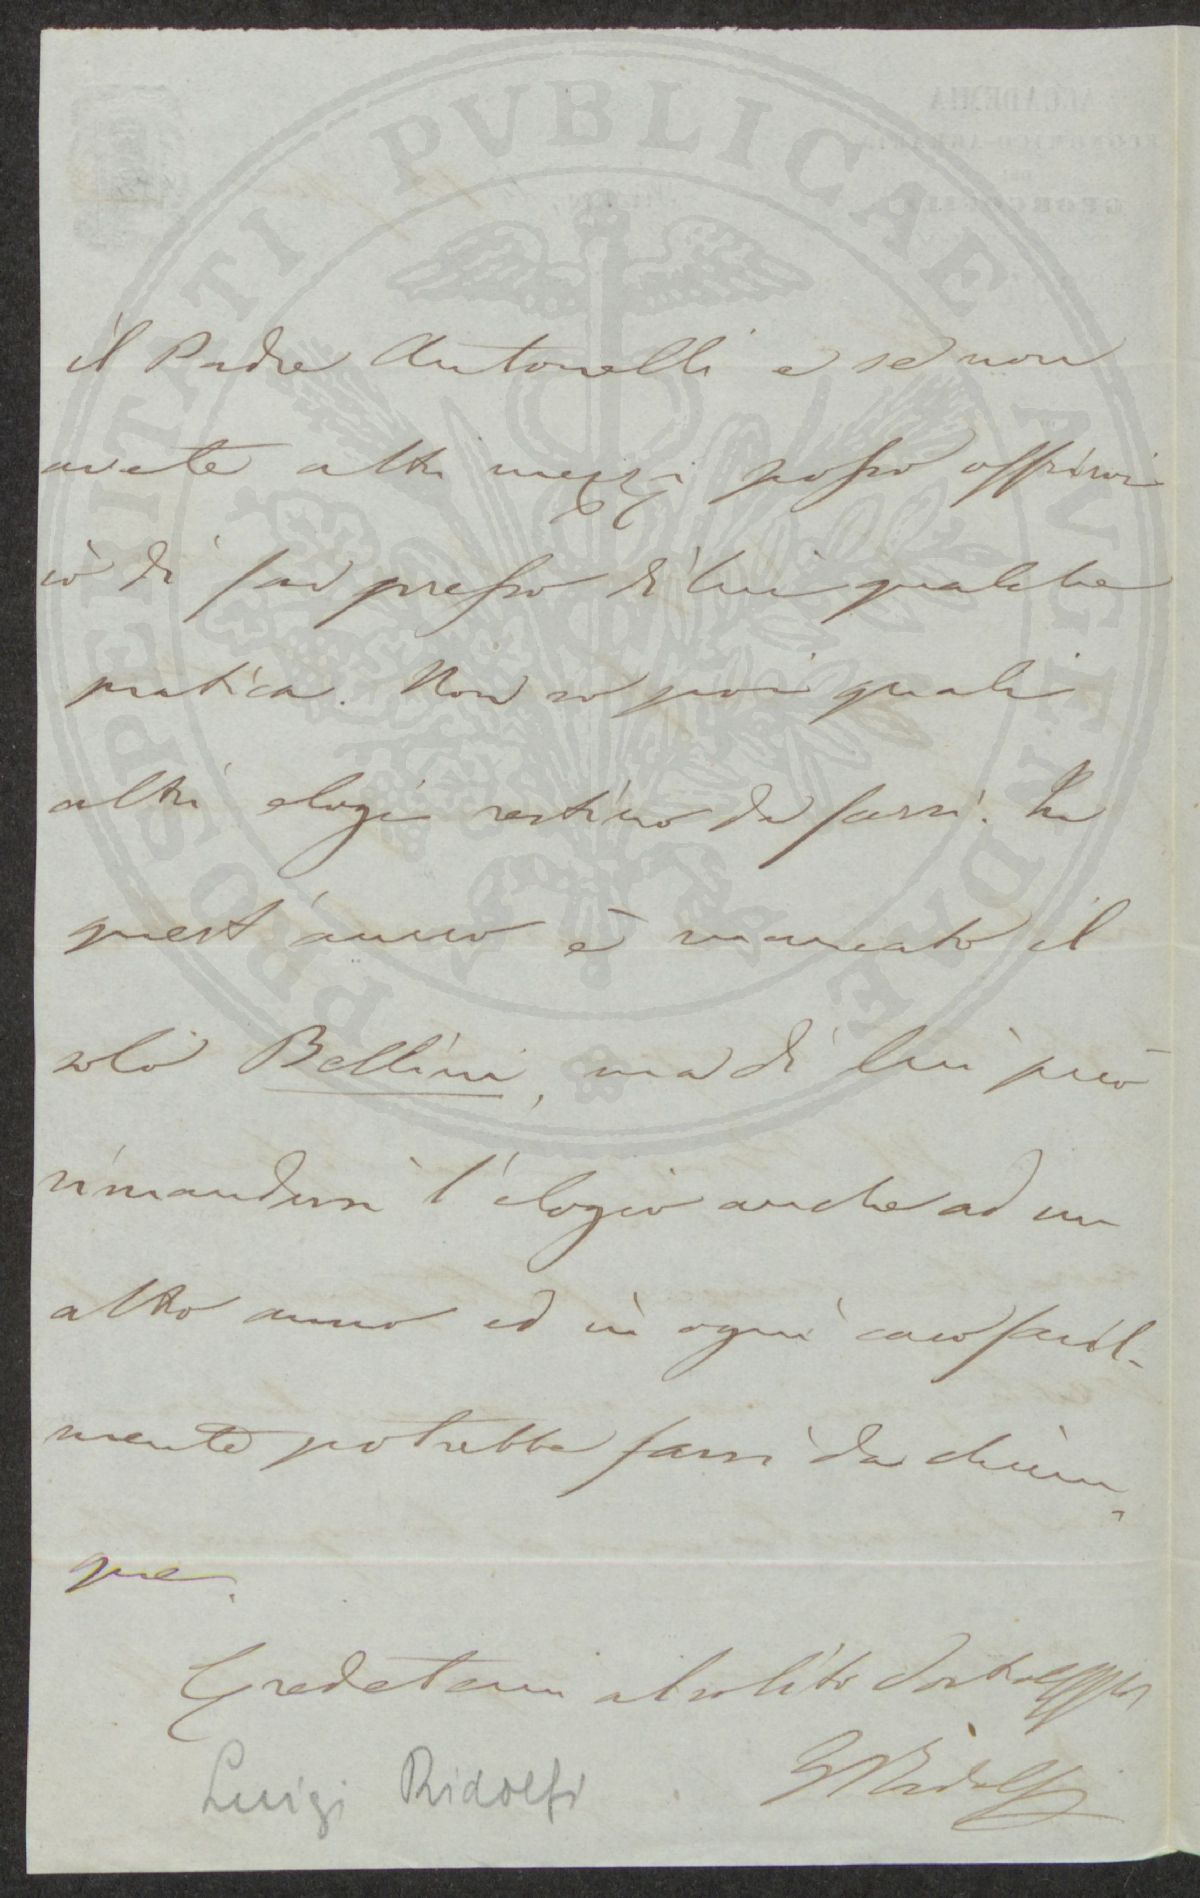 PROSPERITATI PVBLICAE AVGENDAE
ACCADEMIA
GEORGOFILI
il Padre Antonelli e se non
avete altri mezzi posso offrirvi
io di far presso di lui qualche
pratica. Non so poi quali
altri elogi restino da farsi. In
quest' anno è mancato il
solo Bellini, ma di lui può
rimandarsi l'elogio anche ad un
altro anno ed in ogni caso facil-
mente potrebbe farsi da chiun-
que.
Credetemi al solito Vostro
LRidolfi
Luigi Ridolfi